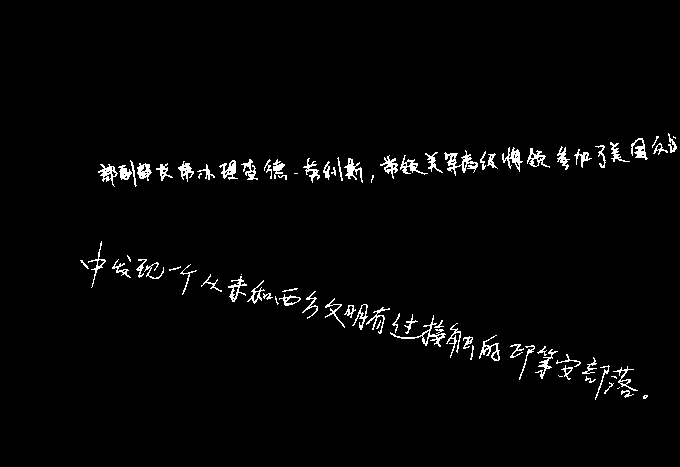 部副部长帮办理查德·劳利斯，带领美军高级将领参加了美国反
中发现一个从未和西方文明有过接触的印第安部落。